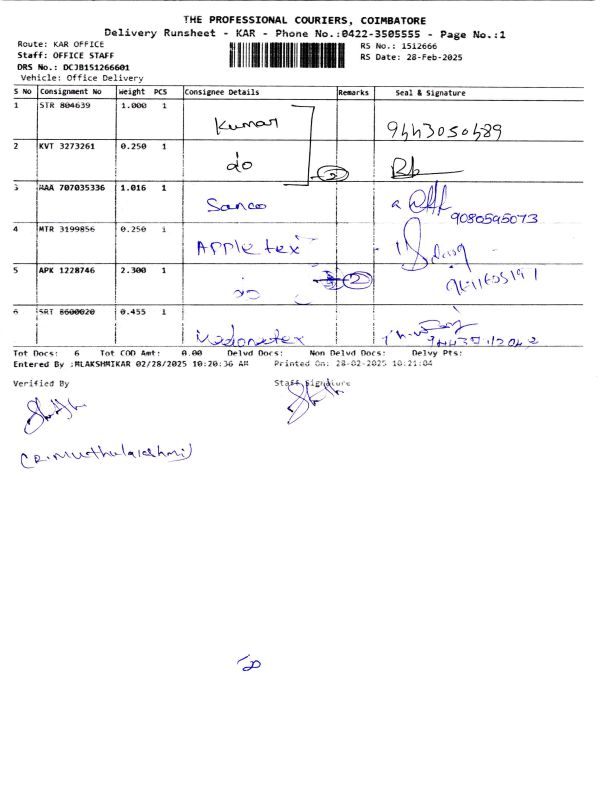 THE PROFESSIONAL COURIERS, COIMBATORE
Delivery Runsheet - KAR - Phone No.:0422-3505555 - Page No.:1
Route: KAR OFFICE
RS No.: 1512666
Staff: OFFICE STAFF
RS Date: 28-Feb-2025
DRS No.: DCJB151266601
Vehicle: Office Delivery
S No Consignment No Weight PCS Consignee Details Remarks Seal & Signature
1 STR 804639 1.000 1
Kumar 9443050489
2 KVT 3273261 0.250 1
do 2
3 MAA 707035336 1.016 1
Sanco 9080595073
4 MTR 3199856 0.250 1
Apple tex
5 APK 1228746 2.300 1
do 2
6 SRT 8600020 0.455 1
Tot Docs: 6 Tot COD Amt: 0.00 Delvd Docs: Non Delvd Docs: Delvy Pts:
Entered By :MLAKSHMIKAR 02/28/2025 10:20:36 AM Printed On: 28-02-2025 10:21:04
Verified By Staff Signature
(R.Muthulakshmi)